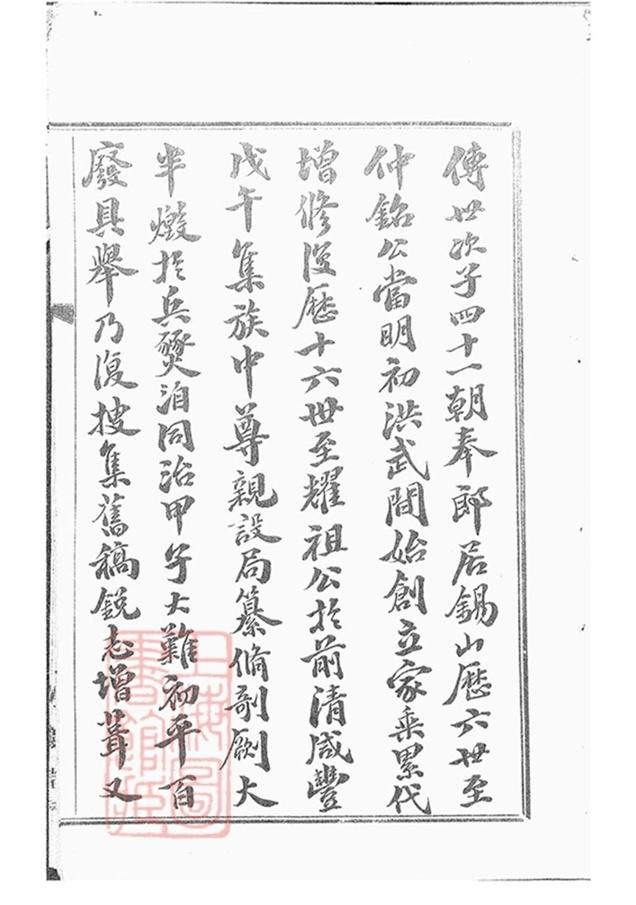 傳世次子四十一朝奉郎居錫山歷六世至
仲銘公當明初洪武間始創立家乘累代
增修復歷十六世至耀祖公於前清咸豐
戊午集族中尊親設局纂脩剞劂大
半燬於兵燹洎同治甲子大難初平百
廢具舉乃復搜集舊稿銳志增葺又
上海圖書館藏